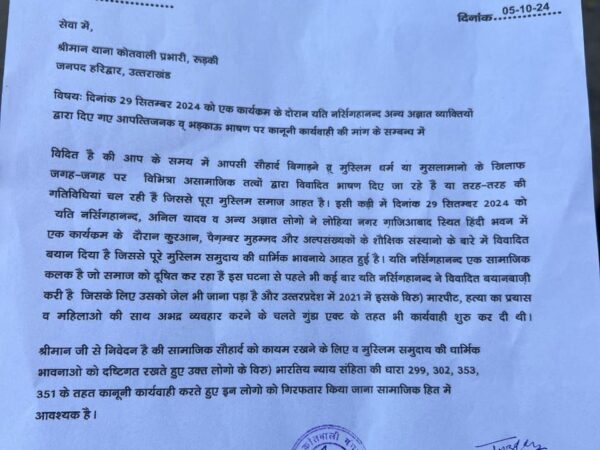 दिनांक 05-10-24
सेवा में,
श्रीमान थाना कोतवाली प्रभारी, रूड़की
जनपद हरिद्वार, उत्तराखंड
विषयः दिनांक 29 सितम्बर 2024 को एक कार्यक्रम के दोरान यति नर्सिगहानन्द अन्य अज्ञात व्याक्तियों
द्वारा दिए गए आपत्तिजनक व् भड़काऊ भाषण पर कानूनी कार्यवाही की मांग के सम्बन्ध में
विदित है की आप के समय में आपसी सौहार्द बिगाड़ने व् मुस्लिम धर्म या मुसलामानो के खिलाफ
जगह-जगह पर विभित्रा असामाजिक तत्वों द्वारा विवादित भाषण दिए जा रहे है या तरह-तरह की
गतिविधियां चल रही हैं जिससे पूरा मुस्लिम समाज आहत है। इसी कड़ी में दिनांक 29 सितम्बर 2024 को
यति नर्सिगहानन्द, अनिल यादव व अन्य अज्ञात लोगो ने लोहिया नगर गाजिआबाद स्थित हिंदी भवन में
एक कार्यक्रम के दौरान कुरआन, पैग़म्बर मुहम्मद और अल्पसख्यकों के शौक्षिक संस्थानो के बारे में विवादित
बयान दिया है जिससे पूरे मुस्लिम समुदाय की धार्भिक भावनाये आहत हुई है। यति नर्सिगहानन्द एक सामाजिक
कलक है जो समाज को दूषित कर रहा हैं इस घटना से पहले भी कई बार यति नर्सिगहानन्द ने विवादित बयानबाज़ी
करी है जिसके लिए उसको जेल भी जाना पड़ा है और उत्तरप्रदेश में 2021 में इसके विरु) मारपीट, हत्या का प्रयास
व महिलाओ की साथ अभद्र व्यवहार करने के चलते गुंडा एक्ट के तहत भी कार्यवाही शुरु कर दी थी।
श्रीमान जी से निवेदन है की सामाजिक सौहार्द को कायम रखने के लिए व मुस्लिम समुदाय की धार्भिक
भावनाओ को दष्टिगत रखते हुए उक्त लोगो के विरु) भारतिय न्याय संहिता की धारा 299, 302, 353,
351 के तहत कानूनी कार्यवाही करते हुए इन लोगो को गिरफतार किया जाना सामाजिक हित में
आवश्यक है।
कोतवाली